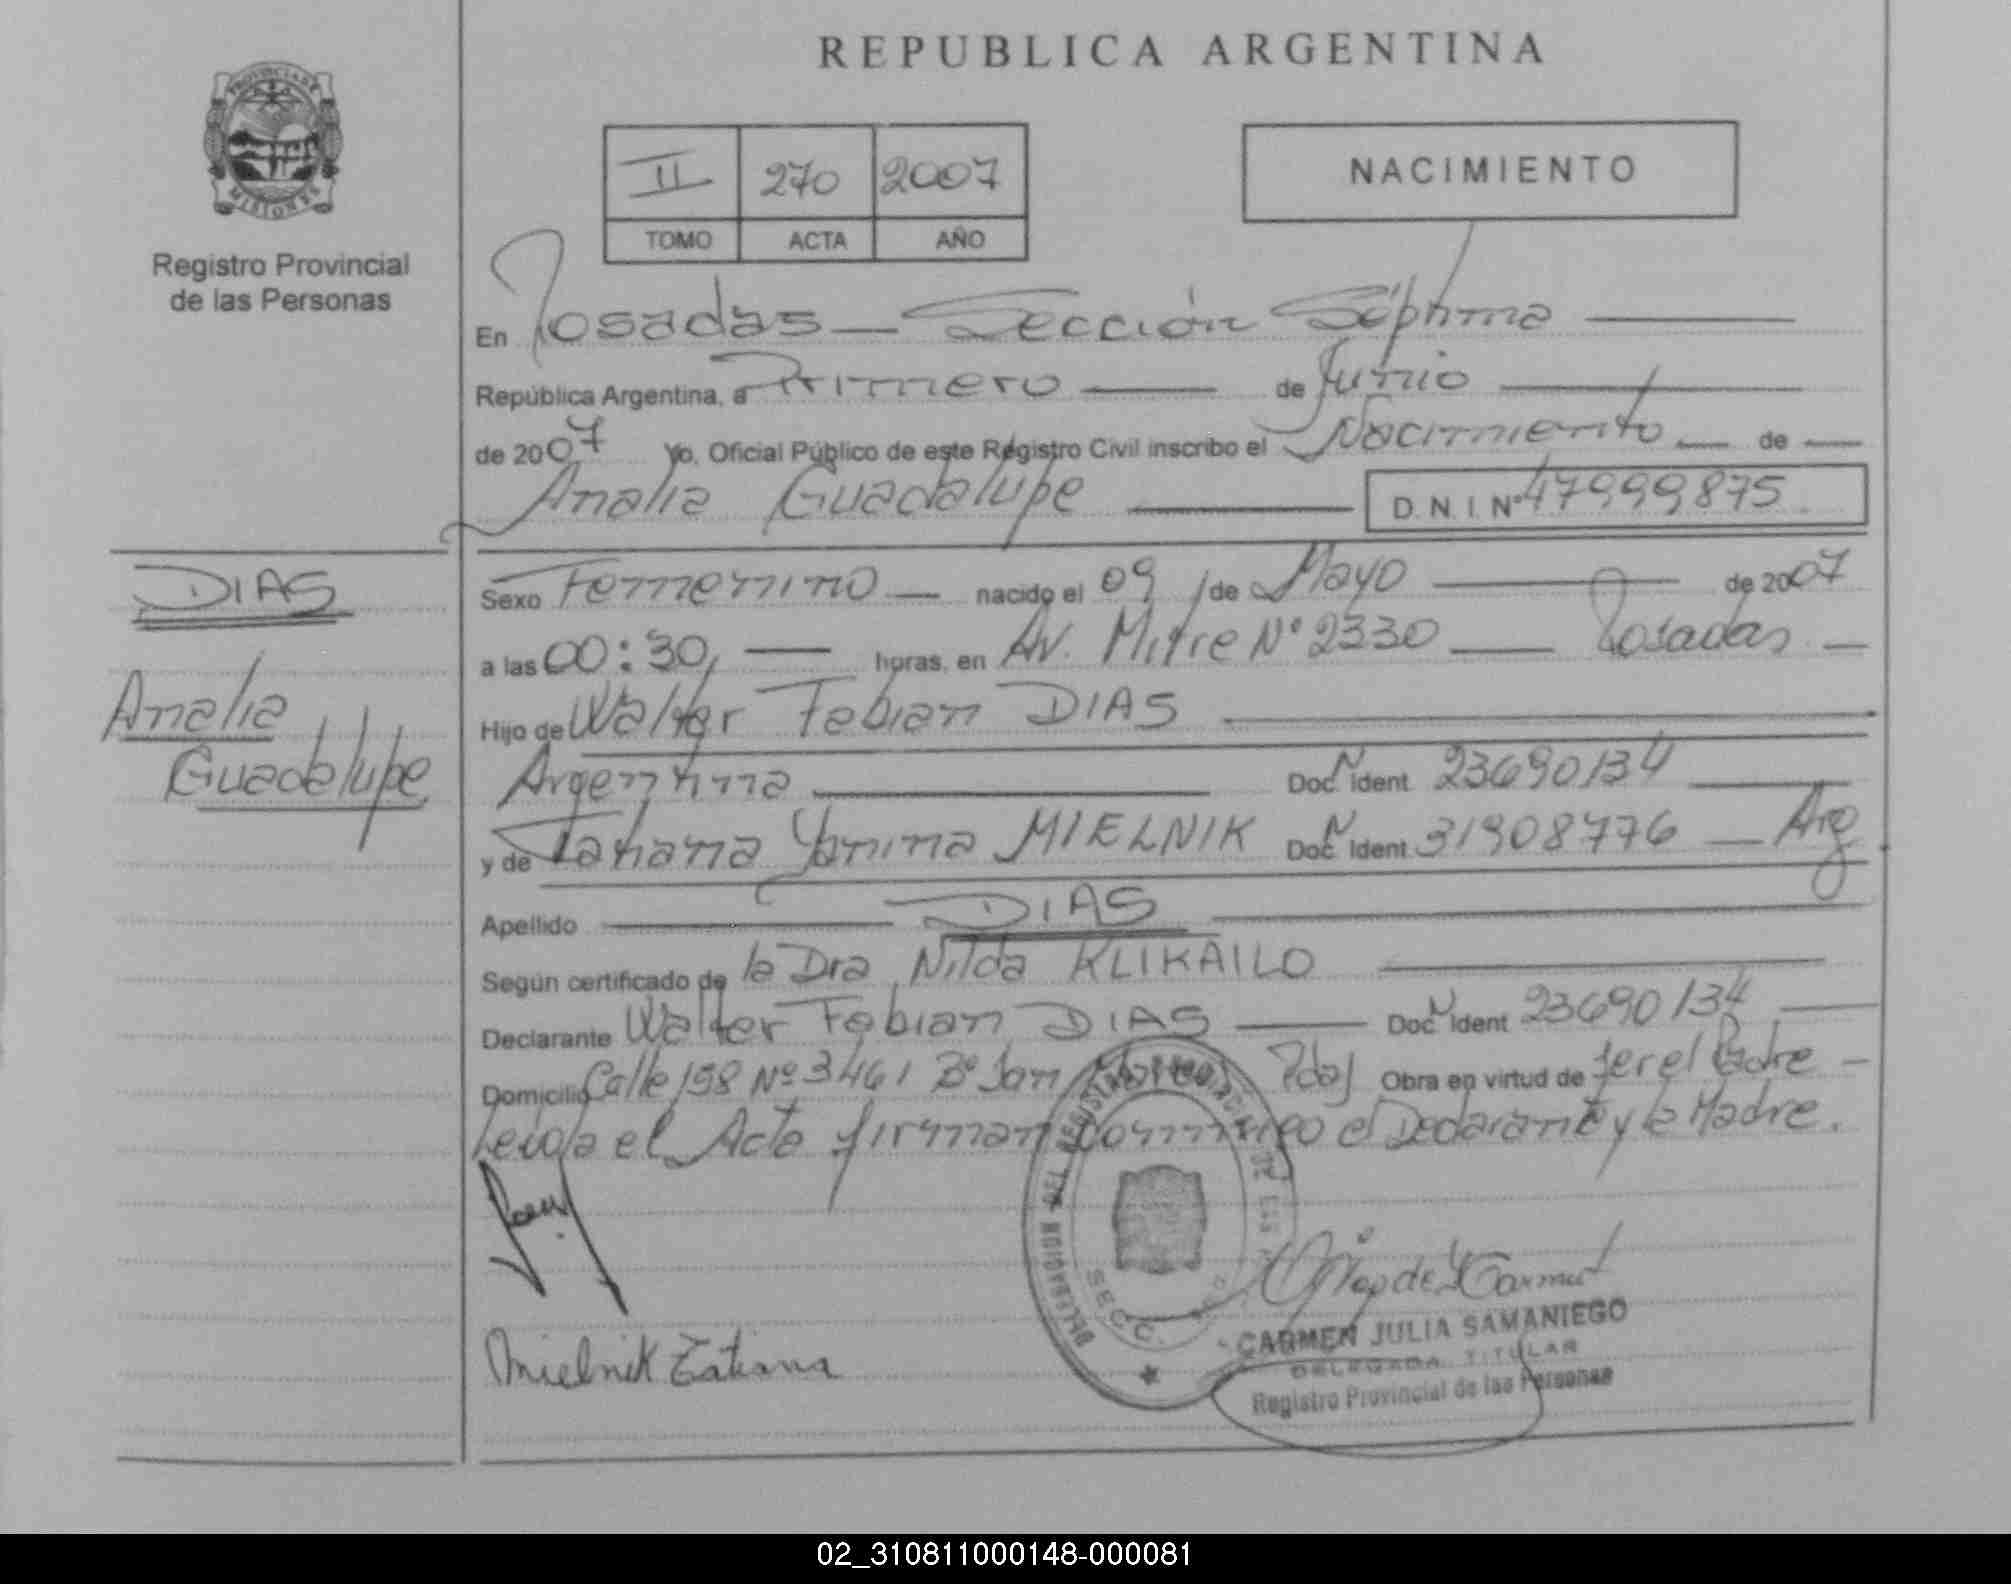 REPUBLICA ARGENTINA
PROVINCIA DE
MISIONES
Registro Provincial
de las Personas
II 270 2007
TOMO ACTA AÑO
NACIMIENTO
En Posadas — Sección Séptima
República Argentina, a Primero de Junio
de 2007 Yo, Oficial Público de este Registro Civil inscribo el Nacimiento de
Analia Guadalupe D.N.I. Nº 47999875
DIAS
Analia
Guadalupe
Sexo Femenino nacido el 09 de Mayo de 2007
a las 00:30, horas, en Av. Mitre Nº 2330 Posadas
Hijo de Walter Fabian DIAS
Argentina Doc. N Ident 23690134
y de Tatiana Yanina MIELNIK Doc. N Ident. 31908776 Arg
Apellido DIAS
Según certificado de la Dra Nilda KLIKAILO
Declarante Walter Fabian DIAS Doc. N Ident 23690134
Domicilio Calle 158 Nº 3461 Bº San Marcos Pdas Obra en virtud de ser el Padre
Leida el Acta firman conmigo el Declarante y la Madre.
DELEGACION DEL REGISTRO PROVINCIAL DE LAS
SECC.
Mielnik Tatiana
CARMEN JULIA SAMANIEGO
DELEGADA TITULAR
Registro Provincial de las Personas
02_310811000148-000081